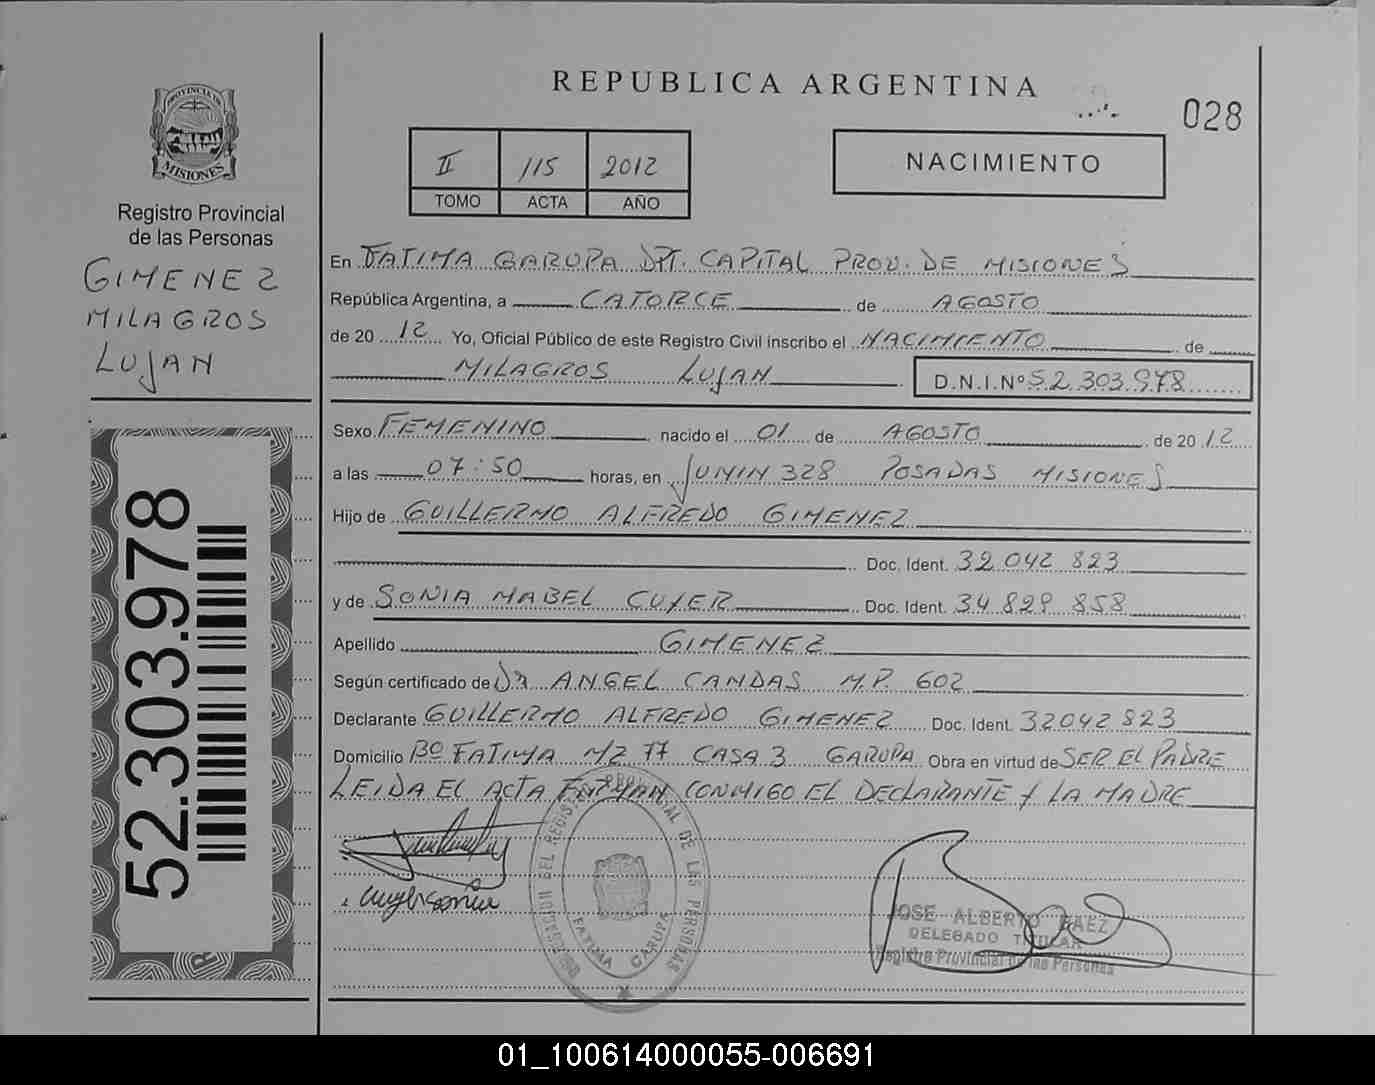 REPUBLICA ARGENTINA
028
PROVINCIA DE
MISIONES
Registro Provincial
de las Personas
GIMENEZ
MILAGROS
LUJAN
II 115 2012
TOMO ACTA AÑO
NACIMIENTO
En FATIMA GARUPA DPT. CAPITAL PROV. DE MISIONES
República Argentina, a CATORCE de AGOSTO
de 20 12 Yo, Oficial Público de este Registro Civil inscribo el NACIMIENTO de
MILAGROS LUJAN D.N.I.Nº 52 303 978
Sexo FEMENINO nacido el 01 de AGOSTO de 20 12
a las 07:50 horas, en JUNIN 328 POSADAS MISIONES
Hijo de GUILLERMO ALFREDO GIMENEZ
Doc. Ident. 32 042 823
y de SONIA MABEL CUYER Doc. Ident. 34 829 858
Apellido GIMENEZ
Según certificado de DR ANGEL CANDAS M.P. 602
Declarante GUILLERMO ALFREDO GIMENEZ Doc. Ident. 32042 823
Domicilio Bº FATIMA MZ 77 CASA 3 GARUPA Obra en virtud de SER EL PADRE
LEIDA EL ACTA FIRMAN CONMIGO EL DECLARANTE Y LA MADRE
52.303.978
DEL REGISTRO PROVINCIAL DE LAS PERSONAS
FATIMA GARUPA
JOSE ALBERTO BAEZ
DELEGADO TITULAR
Registro Provincial de las Personas
01_100614000055-006691